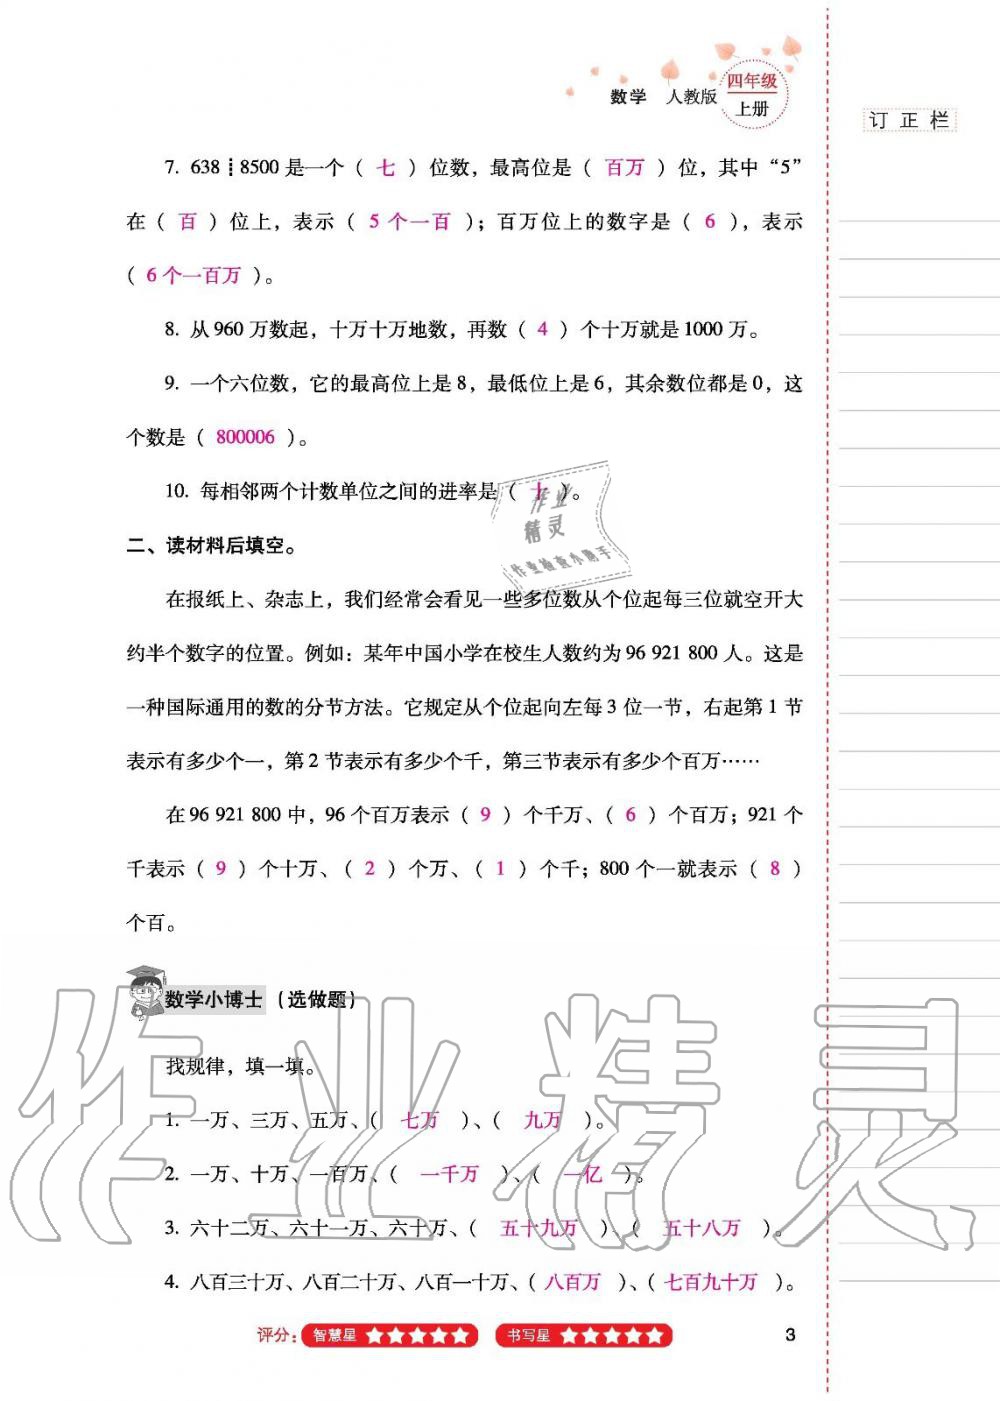 数学 人教版 四年级
上册
订正栏
7. 638┋8500 是一个（ 七 ）位数，最高位是（ 百万 ）位，其中“5”
在（ 百 ）位上，表示（ 5 个一百 ）；百万位上的数字是（ 6 ），表示
（ 6 个一百万 ）。
8. 从 960 万数起，十万十万地数，再数（ 4 ）个十万就是 1000 万。
9. 一个六位数，它的最高位上是 8，最低位上是 6，其余数位都是 0，这
个数是（ 800006 ）。
10. 每相邻两个计数单位之间的进率是（ 十 ）。
作业
精灵
作业检查小助手
二、读材料后填空。
在报纸上、杂志上，我们经常会看见一些多位数从个位起每三位就空开大
约半个数字的位置。例如：某年中国小学在校生人数约为 96 921 800 人。这是
一种国际通用的数的分节方法。它规定从个位起向左每 3 位一节，右起第 1 节
表示有多少个一，第 2 节表示有多少个千，第三节表示有多少个百万……
在 96 921 800 中，96 个百万表示（ 9 ）个千万、（ 6 ）个百万；921 个
千表示（ 9 ）个十万、（ 2 ）个万、（ 1 ）个千；800 个一就表示（ 8 ）
个百。
数学小博士（选做题）
作业精灵
找规律，填一填。
1. 一万、三万、五万、（ 七万 ）、（ 九万 ）。
2. 一万、十万、一百万、（ 一千万 ）、（ 一亿 ）。
3. 六十二万、六十一万、六十万、（ 五十九万 ）、（ 五十八万 ）。
4. 八百三十万、八百二十万、八百一十万、（ 八百万 ）、（ 七百九十万 ）。
评分： 智慧星 ★★★★★ 书写星 ★★★★★ 3